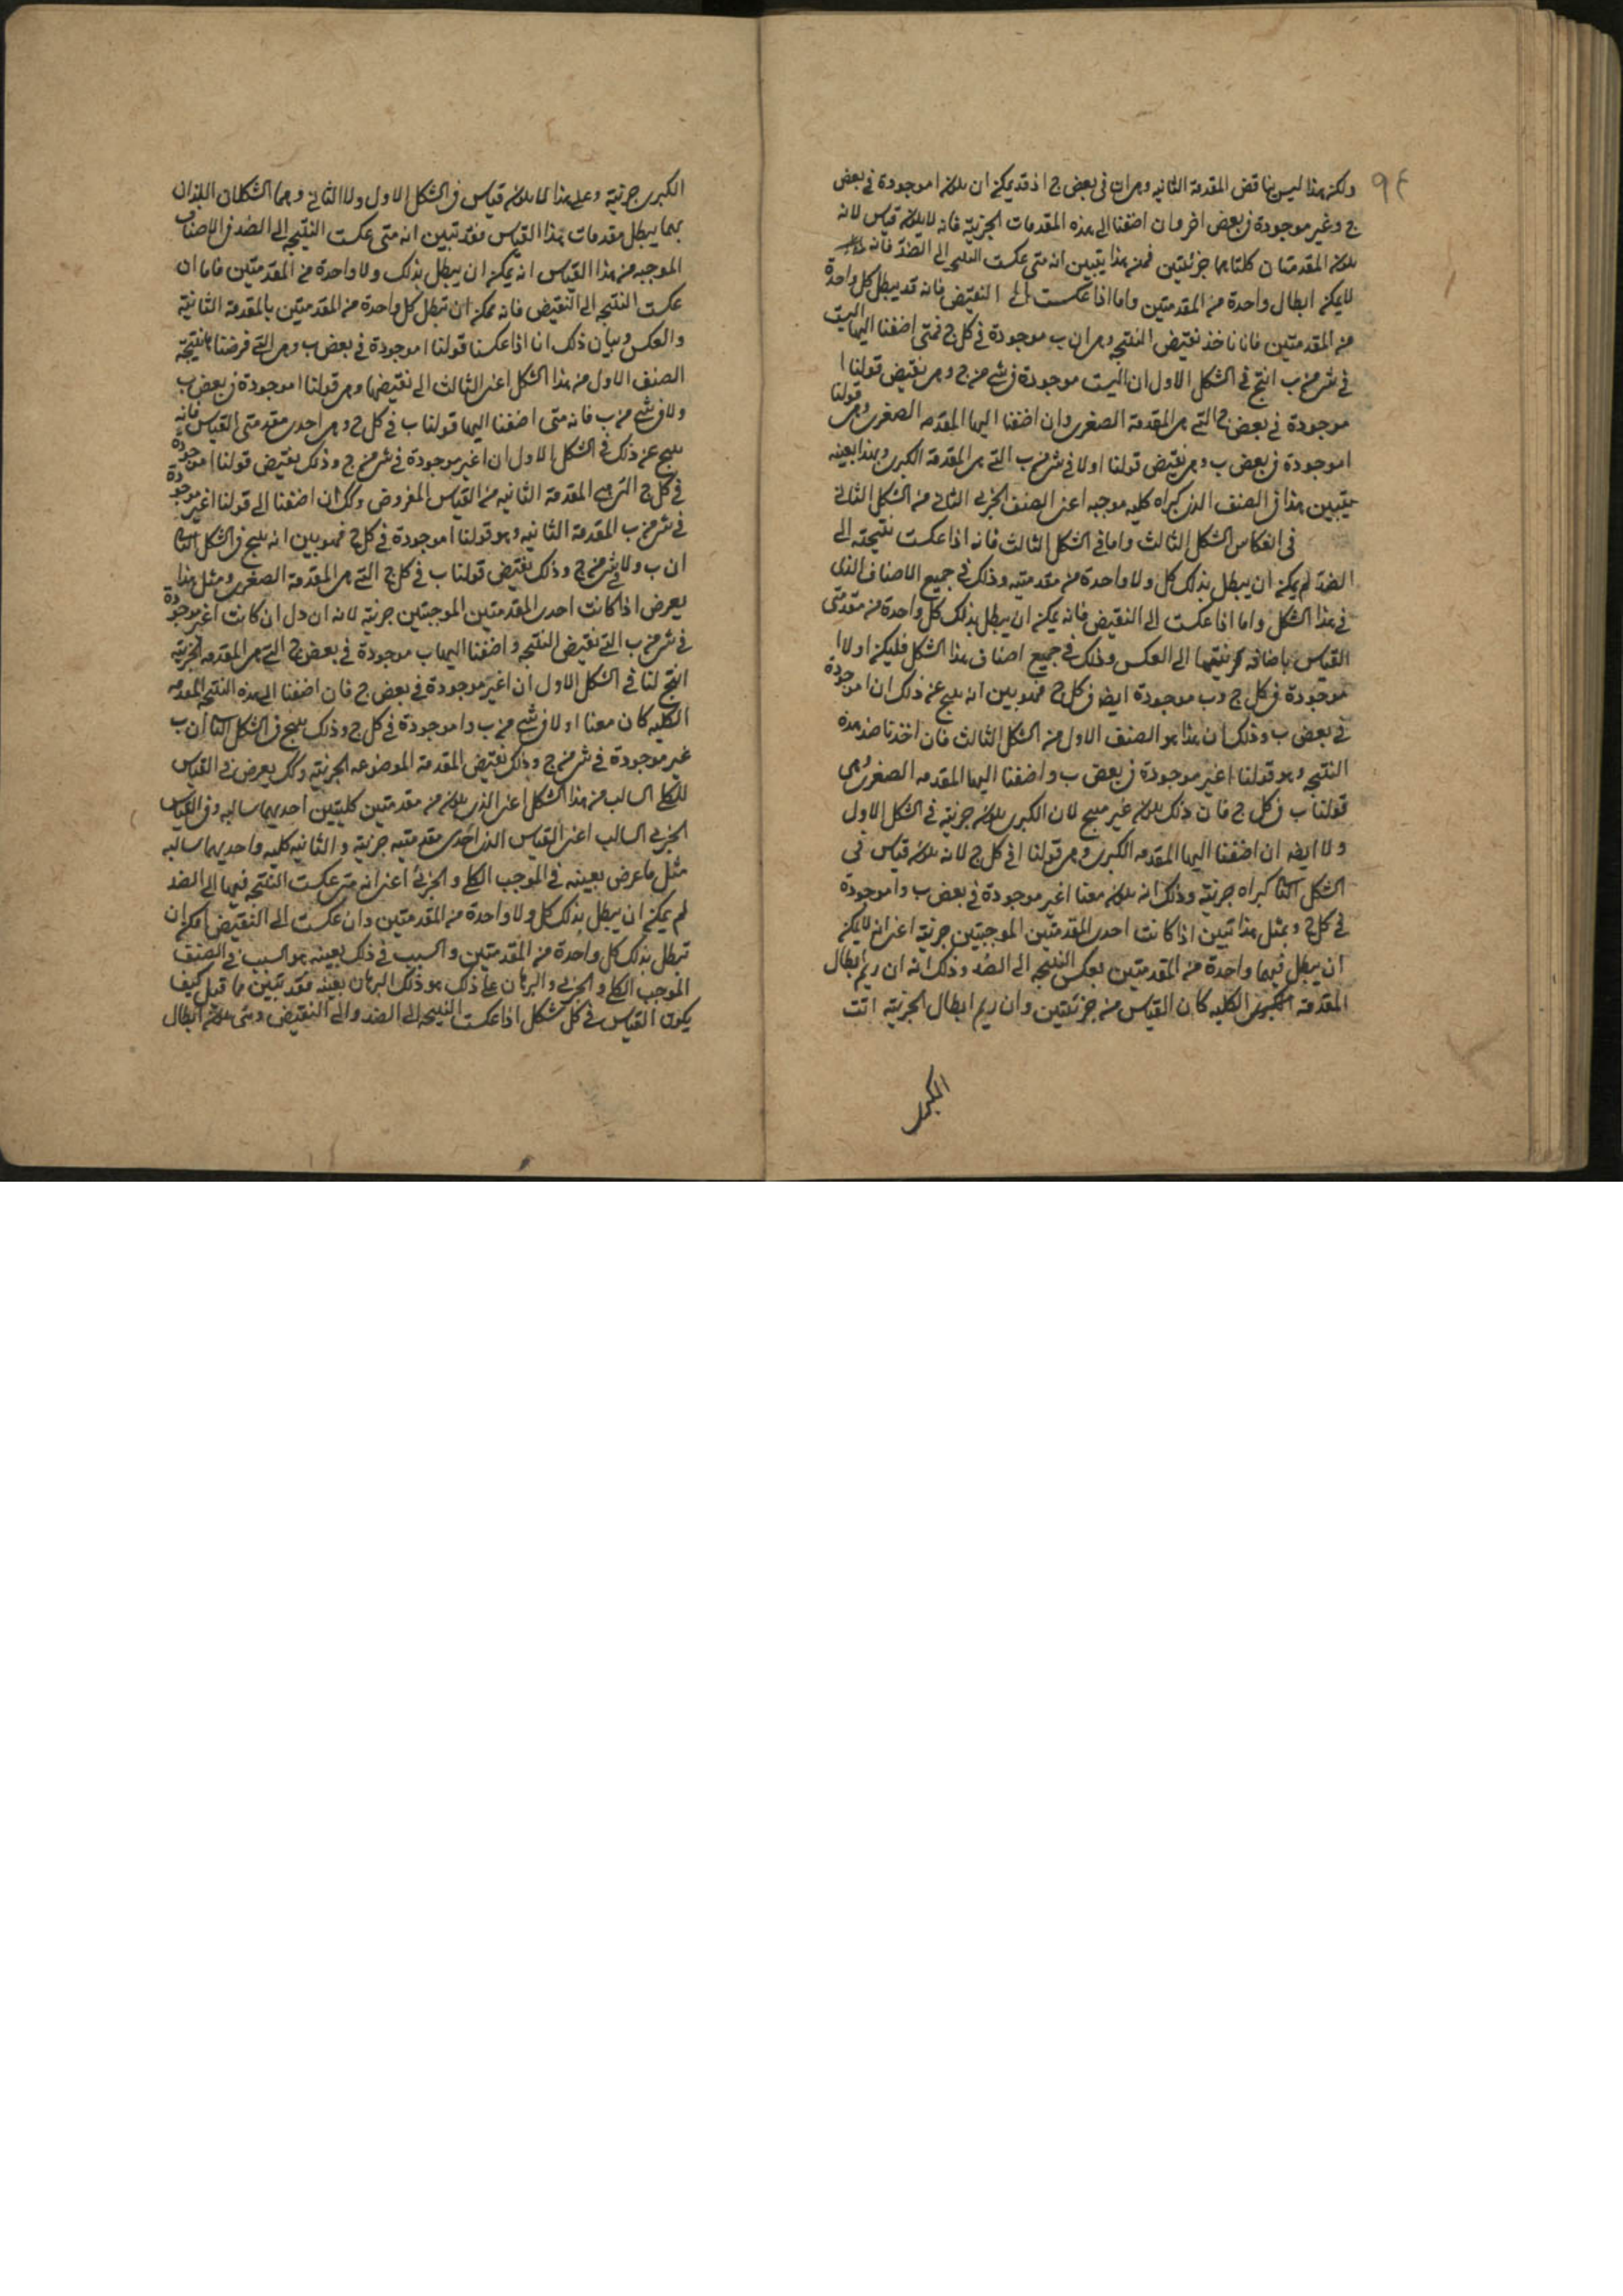 ٩٤
ولكن هذا ليس يناقض المقدمة الثانيه وهى ان فى بعض ج اذ قد يمكن ان يكون ا موجودة فى بعض
ج وغير موجودة فى بعض اخر وان اضفنا الى هذه المقدمات الجزئية فانه لا يكون قياس لانه
يكون المقدمتان كلتاهما جزئيتين فمن هذا يتبين انه متى عكست النتيجه الى الضد فانه
لا يمكن ابطال واحدة من المقدمتين واما اذا عكست الى النقيض فانه قد يبطل كل واحدة
من المقدمتين فانا ناخذ نقيض النتيجه وهى ان ب موجودة فى كل ج فمتى اضفنا اليها ا ليست
فى شى من ب انتج فى الشكل الاول ان ا ليست موجودة فى شى من ج وهى نقيض قولنا ا
موجودة فى بعض ج التى هى المقدمة الصغرى وان اضفنا اليها المقدمه الصغرى وهى قولنا
ا موجودة فى بعض ب وهى نقيض قولنا ا ولا فى شى من ب التى هى المقدمة الكبرى وبهذا بعينه
يتبين هذا فى الصنف الذى كبراه كليه موجبه اعنى الصنف الجزيى الثانى من الشكل الثانى
فى انعكاس الشكل الثالث واما فى الشكل الثالث فانه اذا عكست نتيجته الى
الضد لم يمكن ان يبطل بذلك كل ولا واحدة من مقدمتيه وذلك فى جميع الاصناف الذى
فى هذا الشكل واما اذا عكست الى النقيض فانه يمكن ان يبطل بذلك كل واحدة من مقدمتى
القياس باضافه الى العكس وذلك فى جميع اصناف هذا الشكل فليكن اولا ا
موجودة فى كل ج وب موجودة ايضا فى كل ج فهو بين انه ينتج عن ذلك ان ا موجودة
فى بعض ب وذلك ان هذا هو الصنف الاول من الشكل الثالث فان اخذنا ضد هذه
النتيجه وهو قولنا ا غير موجودة فى بعض ب واضفنا اليها المقدمه الصغرى وهى
قولنا ب فى كل ج فان ذلك يكون غير منتج لان الكبرى يكون جزئية فى الشكل الاول
ولا ايضه ان اضفنا اليها المقدمه الكبرى وهى قولنا ا فى كل ج لانه يكون قياس فى
الشكل الثا كبراه جزئية وذلك انه يكون معنا ا غير موجودة فى بعض ب وا موجودة
فى كل ج وبمثل هذا تبين اذا كانت احدى المقدمتين الموجبتين جزئية اعنى انه لا يمكن
ان يبطل فيهما واحدة من المقدمتين بعكس النتيجه الى الضد وذلك انه ان ريم ابطال
المقدمة الكبرى الكليه كان القياس من جزئيتين وان ريم ابطال الجزئية اتت
الكبرى
الكبرى جزئية وعلى هذا لا يكون قياس فى الشكل الاول ولا الثانى وهما الشكلان اللذان
بهما يبطل مقدمات هذا القياس فقد تبين انه متى عكست النتيجه الى الضد فى الاصناف
الموجبه من هذا القياس انه يمكن ان يبطل بذلك ولا واحدة من المقدمتين فاما ان
عكست النتيجه الى النقيض فانه ممكن ان تبطل كل واحدة من المقدمتين بالمقدمة الثانية
والعكس وبيان ذلك انا اذا عكسنا قولنا ا موجودة فى بعض ب وهى التى فرضنا نتيجة
الصنف الاول من هذا الشكل اعنى الثالث الى نقيضها وهى قولنا ا موجودة فى بعض ب
ولا فى شى من ب فانه متى اضفنا اليها قولنا ب فى كل ج وهى احدى مقدمتى القياس فانه
ينتج عن ذلك فى الشكل الاول ان ا غير موجودة فى شى من ج وذلك نقيض قولنا ا موجودة
فى كل ج التى هى المقدمة الثانيه من القياس المفروض وكك ان اضفنا الى قولنا ا غير موجودة
فى شى من ب المقدمة الثانيه وهو قولنا ا موجودة فى كل ج فهو بين انه ينتج فى الشكل الثانى
ان ب ولا فى شى من ج وذلك نقيض قولنا ب فى كل ج التى هى المقدمة الصغرى ومثل هذا
يعرض اذا كانت احدى المقدمتين الموجبتين جزئية لانه ان دل ان كانت ا غير موجودة
فى شى من ب التى نقيض النتيجه واضفنا اليها ب موجودة فى بعض ج التى هى المقدمه الجزئية
انتج لنا فى الشكل الاول ان ا غير موجودة فى بعض ج فان اضفنا الى هذه النتيجه المقدمه
الكليه كان معنا ا ولا فى شى من ب وا موجودة فى كل ج وذلك ينتج فى الشكل الثا ان ب
غير موجودة فى شى من ج وذلك نقيض المقدمة الموضوعه الجزئية وكك يعرض فى القياس
الكلى السالب من هذا الشكل اعنى الذى يكون من مقدمتين كليتين احديهما سالبه وفى القياس
الجزيى السالب اعنى القياس الذى احدى مقدمتيه جزئية والثانيه كليه واحديهما سالبه
مثل ما عرض بعينه فى الموجب الكلى والجزئى اعنى انه متى عكست النتيجه فيهما الى الضد
لم يمكن ان يبطل بذلك كل ولا واحدة من المقدمتين وان عكست الى النقيض امكن ان
تبطل بذلك كل واحدة من المقدمتين والسبب فى ذلك بعينه هو السبب فى الصنف
الموجب الكلى والجزيى والبرهان على ذلك هو ذلك البرهان بعينه فقد تبين مما قيل كيف
يكون القياس فى كل شكل اذا عكست النتيجه الى الضد والى النقيض ومتى يكون ابطال